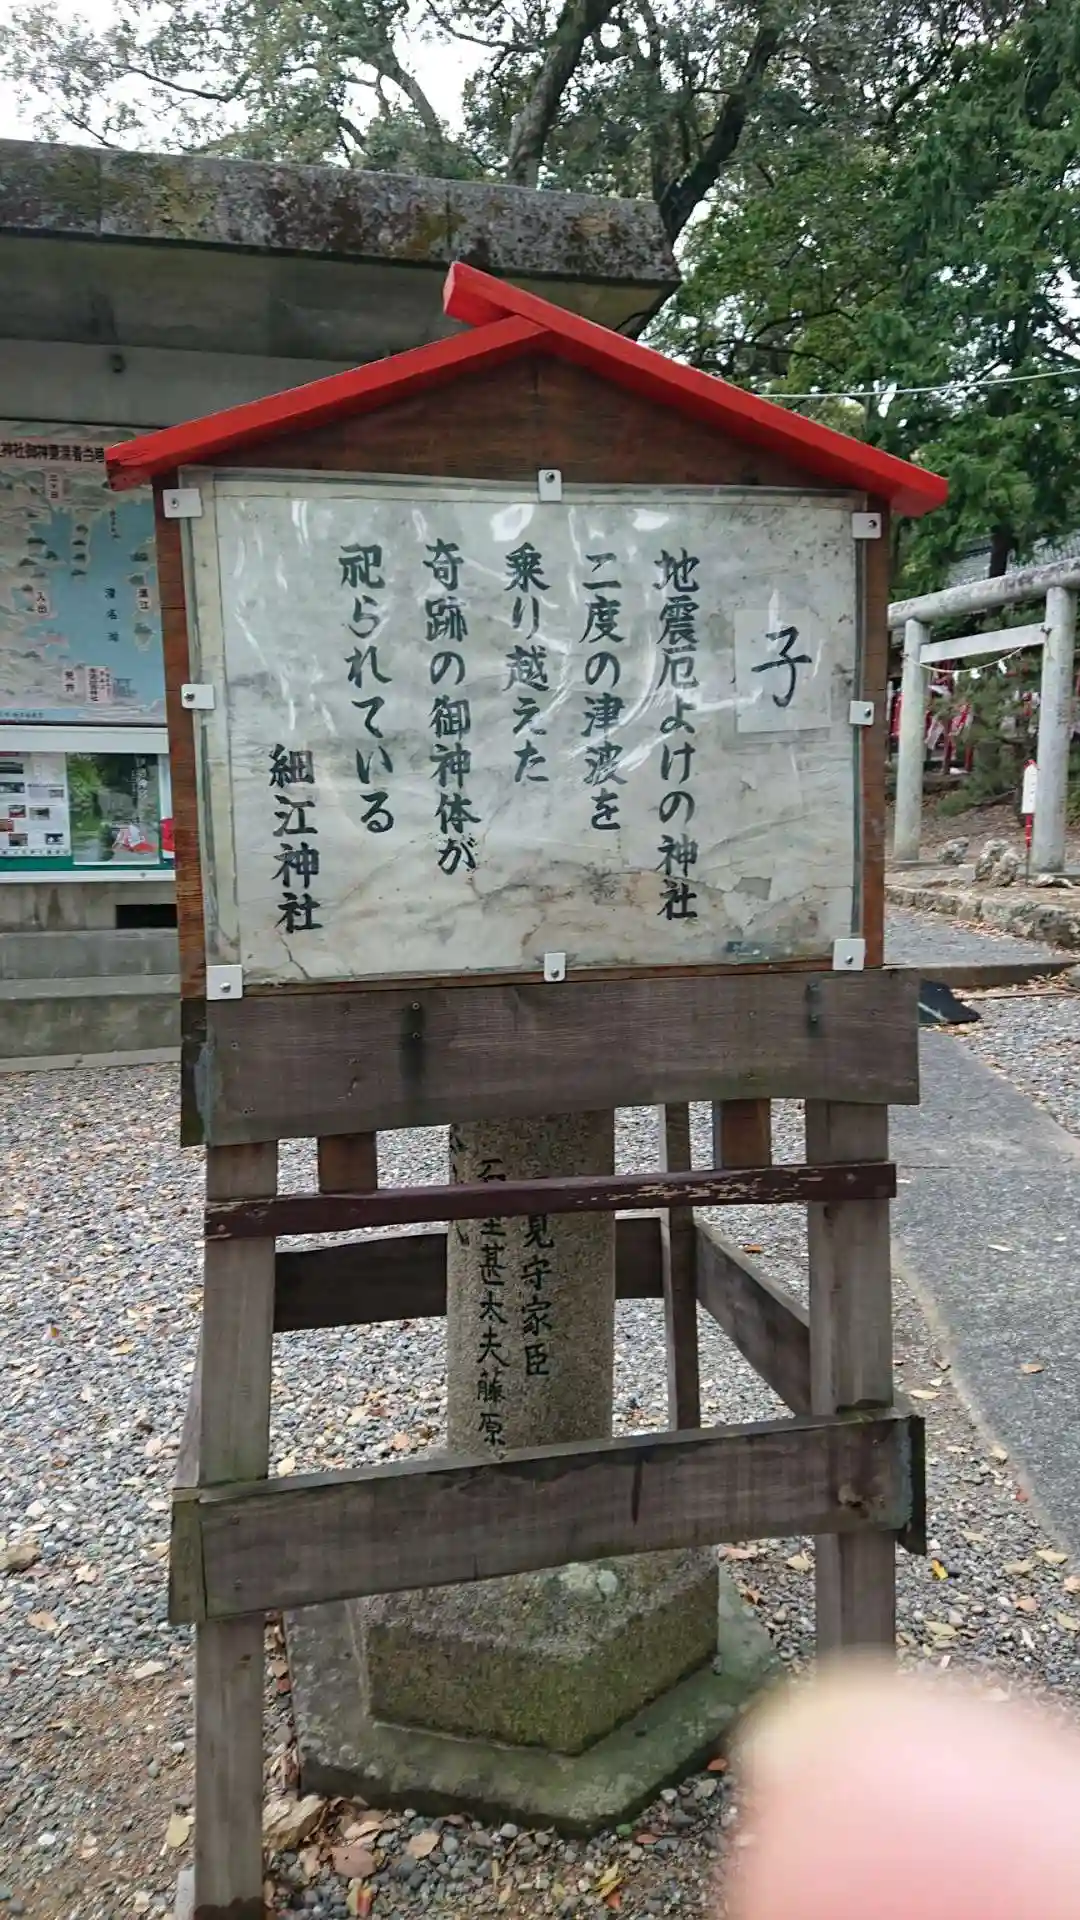 子
地震厄よけの神社
二度の津波を
乗り越えた
奇跡の御神体が
祀られている
細江神社
見守家臣
甚太夫藤原
神社御神霊漂着
入出
新井